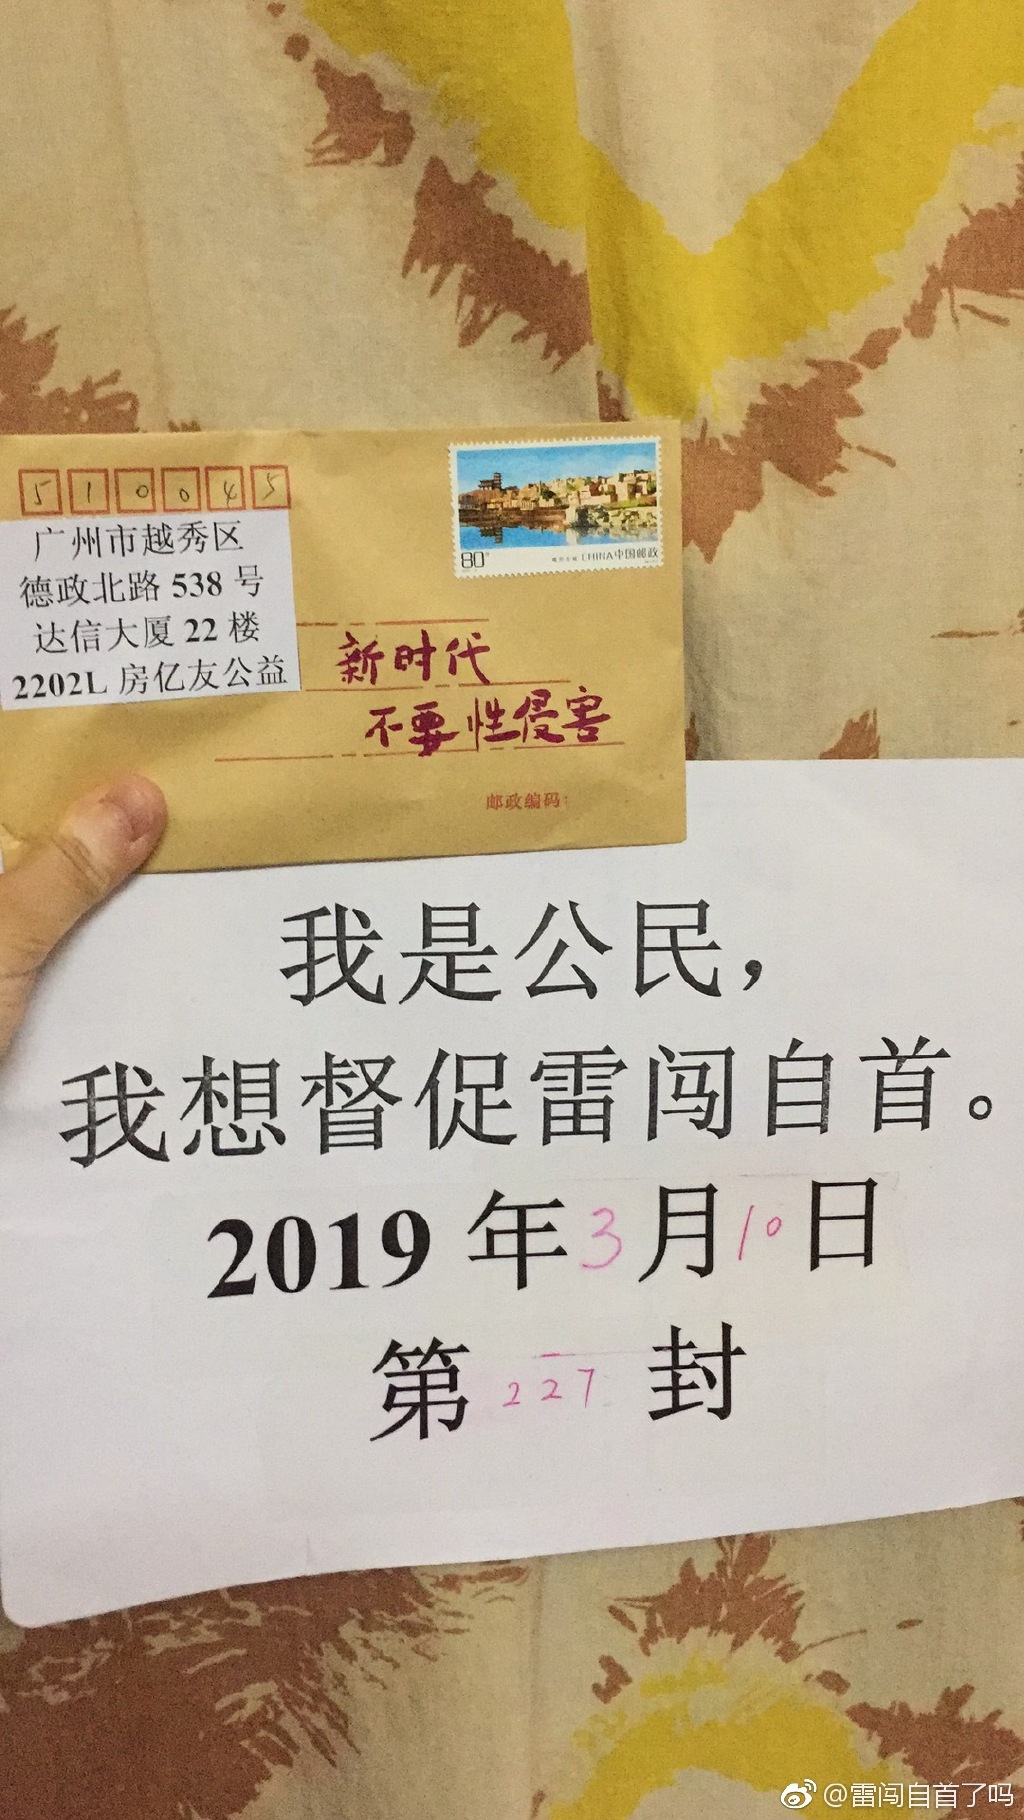 510045
广州市越秀区
德政北路 538 号
达信大厦 22 楼
2202L 房亿友公益
80
CHINA中国邮政
新时代
不要性侵害
邮政编码:
我是公民,
我想督促雷闯自首。
2019 年 3 月 10 日
第 227 封
@雷闯自首了吗